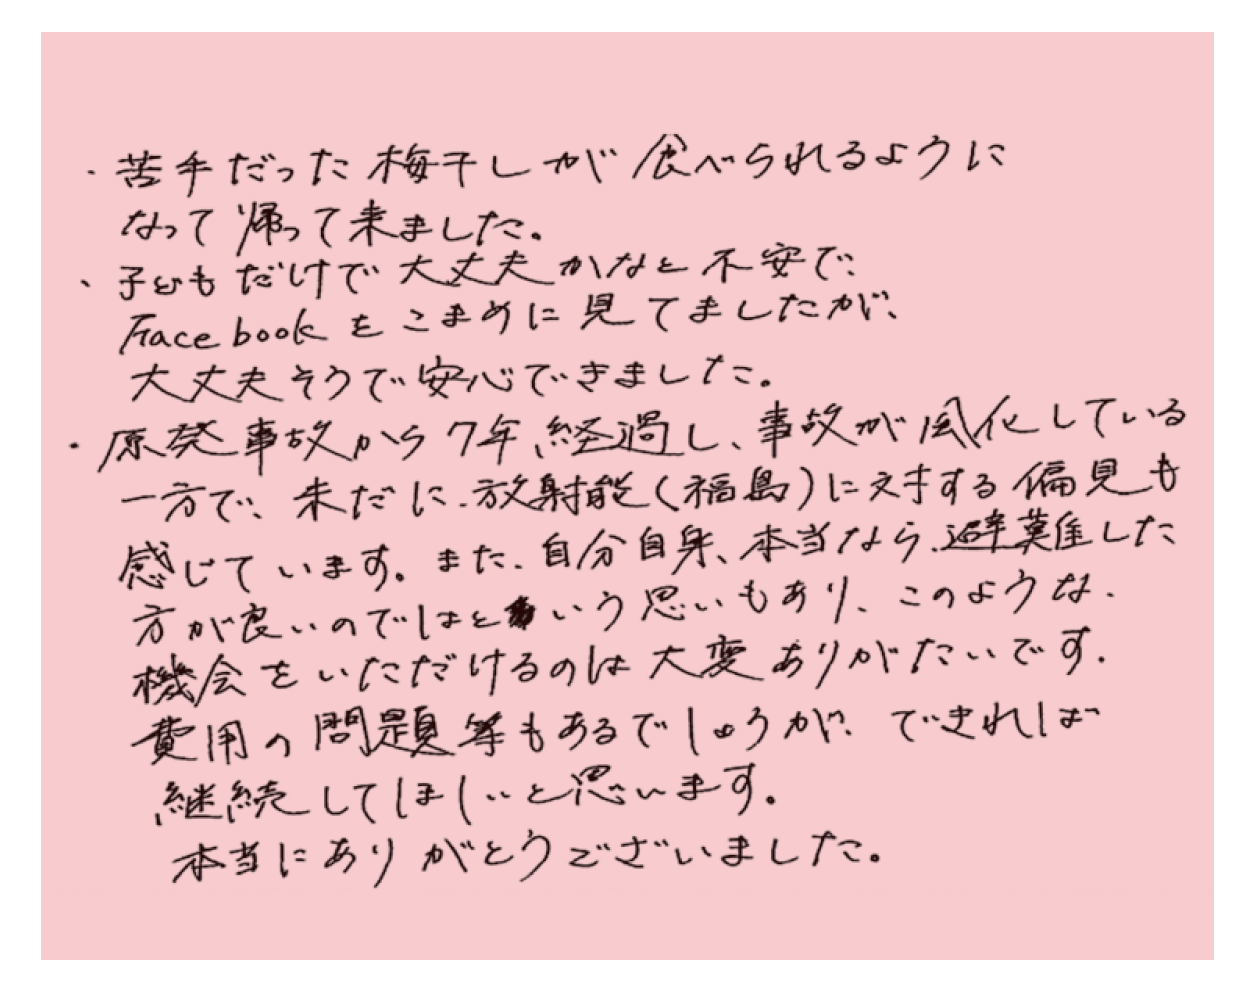 ・苦手だった梅干しが食べられるように
なって帰って来ました。
・子どもだけで大丈夫かなと不安で、
Facebookをこまめに見てましたが、
大丈夫そうで安心できました。
・原発事故から7年、経過し、事故が風化している
一方で、未だに、放射能(福島)に対する偏見も
感じています。また、自分自身、本当なら、避難した
方が良いのではという思いもあり、このような、
機会をいただけるのは大変ありがたいです。
費用の問題等もあるでしょうが、できれば
継続してほしいと思います。
本当にありがとうございました。